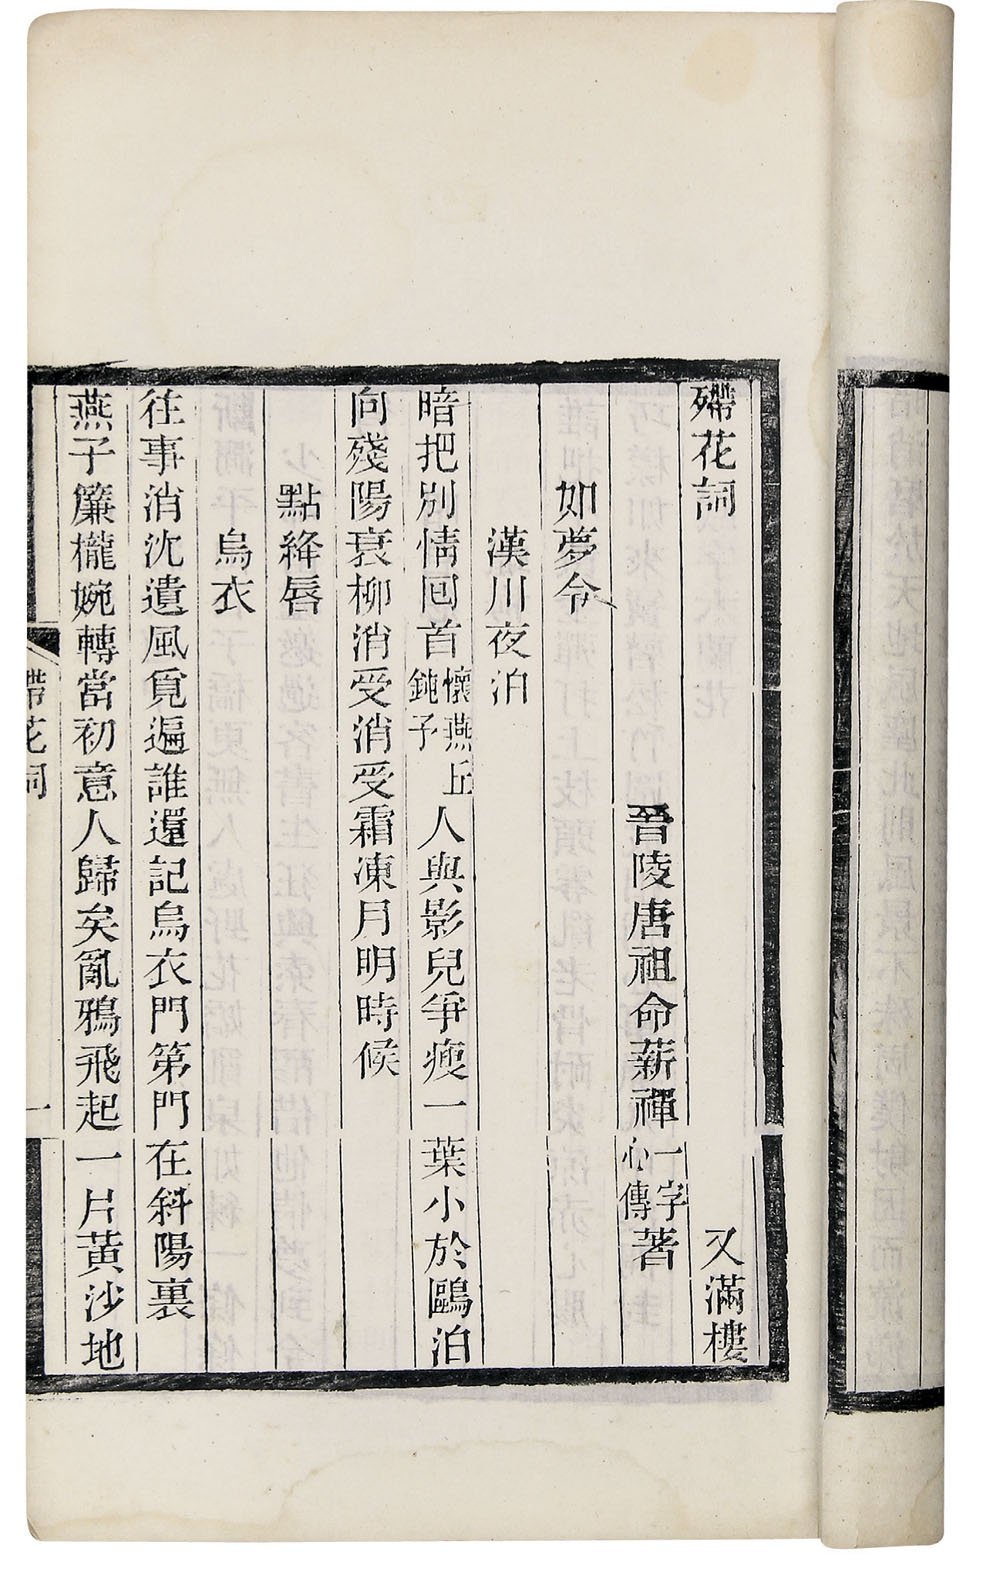 殢花詞　又滿樓
晉陵唐祖命薪禪一字心傳著
如夢令
漢川夜泊
暗把別情回首懷燕丘鈍子人與影兒爭瘦一葉小於鷗泊
向殘陽衰柳消受消受霜凍月明時候
點絳唇
烏衣
往事消沈遺風覓遍誰還記烏衣門第門在斜陽裏
燕子簾櫳婉轉當初意人歸矣亂鴉飛起一片黃沙地
花詞　一